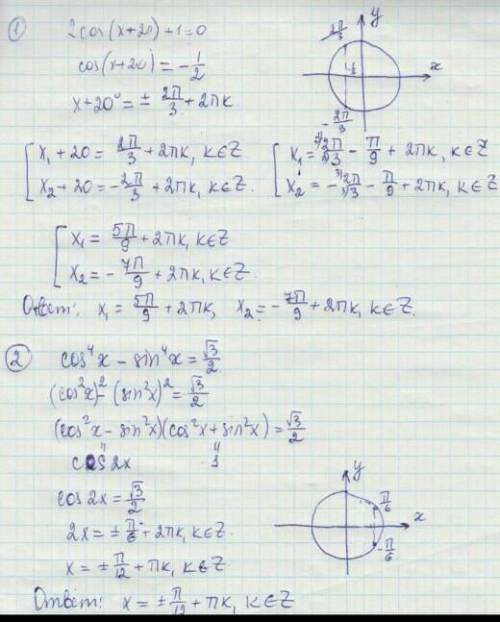 ①
2cos(x+20)+1=0
cos(x+20°)= -1/2
x+20°= ± 2π/3 + 2πk
y
x
2π/3
-1/2
-2π/3
[ x₁ + 20 = 2π/3 + 2πk, k∈Z
x₂ + 20 = -2π/3 + 2πk, k∈Z.
[ x₁ = ³⁾2π/3 - π/9 + 2πk, k∈Z
x₂ = - ³⁾2π/3 - π/9 + 2πk, k∈Z
[ x₁ = 5π/9 + 2πk, k∈Z
x₂ = - 7π/9 + 2πk, k∈Z.
Ответ: x₁ = 5π/9 + 2πk, x₂ = - 7π/9 + 2πk, k∈Z.
②
cos⁴x - sin⁴x = √3/2
(cos²x)² - (sin²x)² = √3/2
(cos²x - sin²x)(cos²x + sin²x) = √3/2
"
"
cos 2x
1
cos 2x = √3/2
2x = ± π/6 + 2πk, k∈Z.
x = ± π/12 + πk, k∈Z
y
x
π/6
-π/6
Ответ: x = ± π/12 + πk, k∈Z